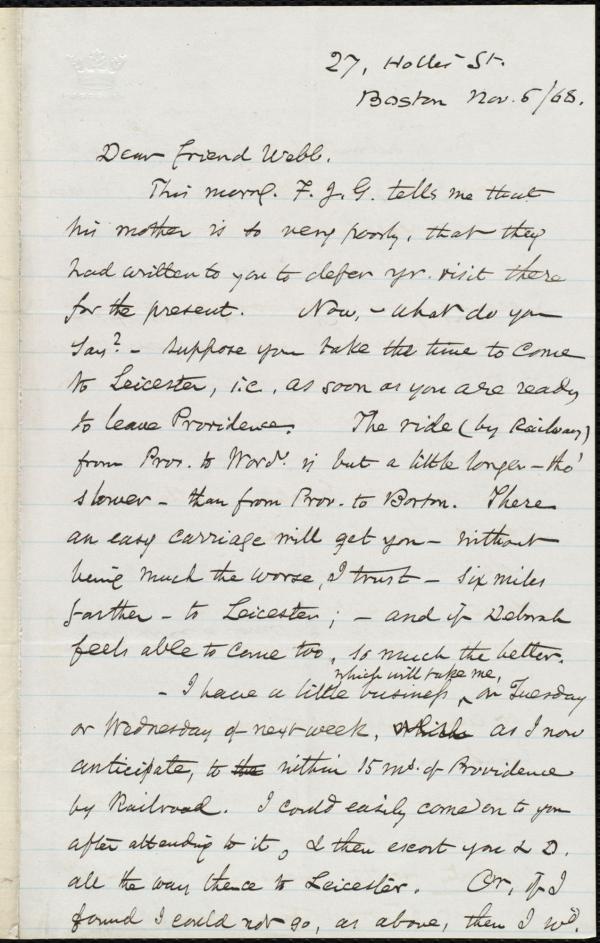 27, Hollis St.
Boston Nov. 5/68.
Dear friend Webb.
This morng. F. J. G. tells me that
his mother is so very poorly, that they
had written to you to defer yr. visit there
for the present. Now, – what do you
say? – Suppose you take the time to come
to Leicester, i.e. as soon as you are ready
to leave Providence. The ride (by Railway)
from Prov. to Worcr. is but a little longer – tho'
slower – than from Prov. to Boston. There
an easy carriage will get you – without
being much the worse, I trust – six miles
farther – to Leicester; – and if Deborah
feels able to come too, so much the better.
which will take me,
– I have a little business ‸ on Tuesday
or Wednesday of next week, which as I now
anticipate, to the within 15 ms. of Providence
by Railroad. I could easily come on to you
after attending to it, & then escort you & D.
all the way thence to Leicester. Or, if I
found I could not go, as above, then I wd.